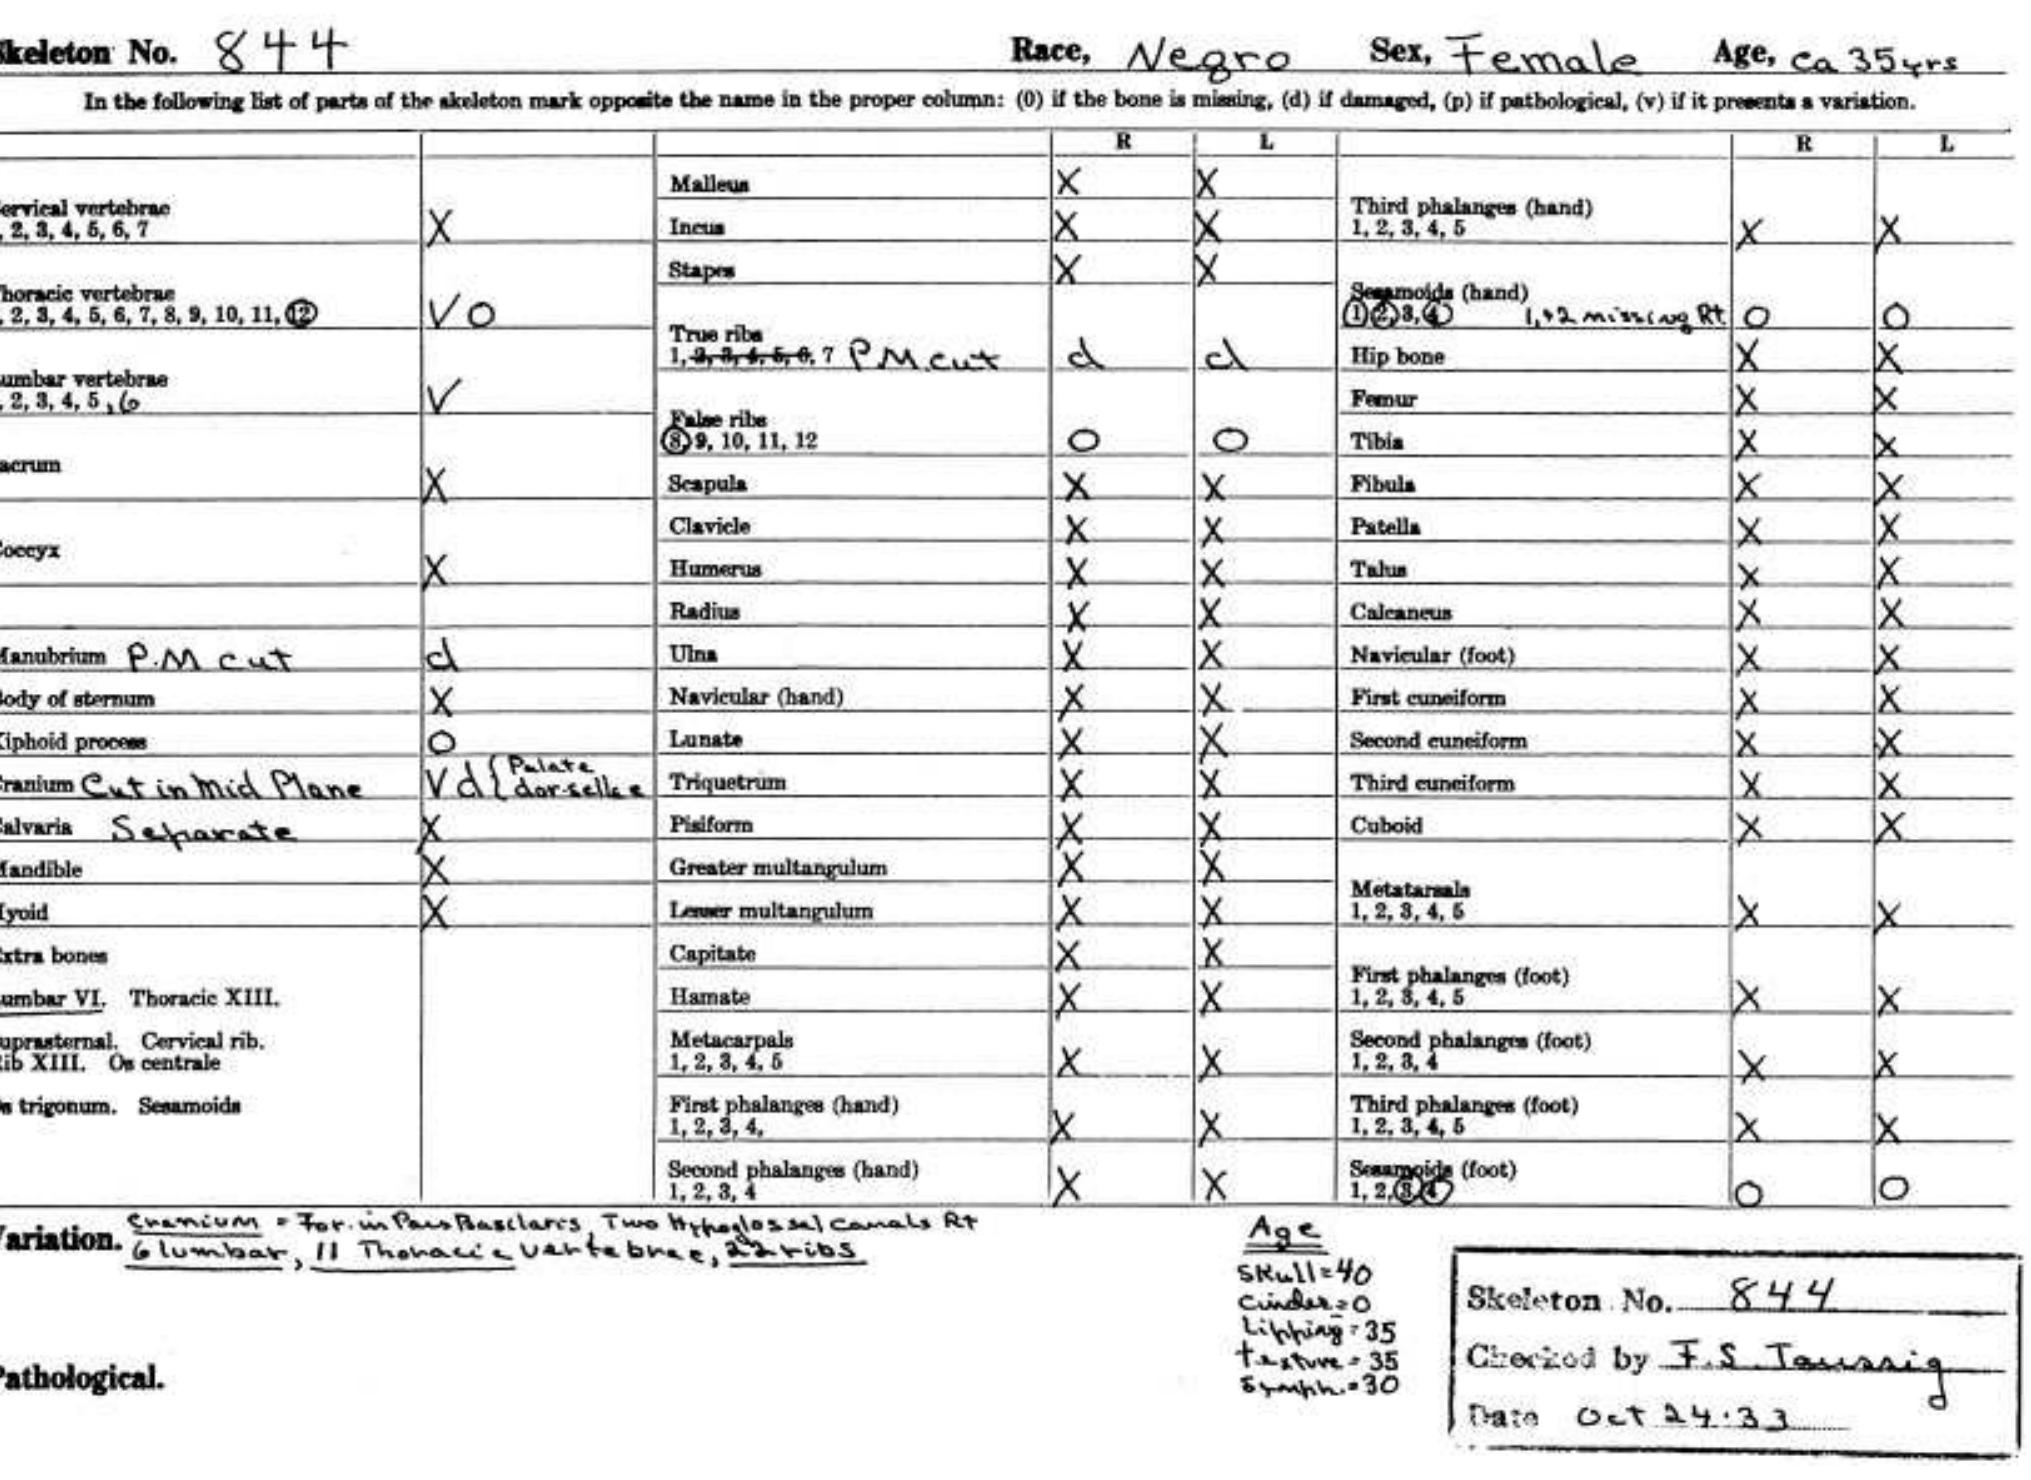 keleton No. 844 Race, Negro Sex, Female Age, ca 35 yrs
In the following list of parts of the skeleton mark opposite the name in the proper column: (0) if the bone is missing, (d) if damaged, (p) if pathological, (v) if it presents a variation.
R L R L
ervical vertebrae
, 2, 3, 4, 5, 6, 7 X
horacic vertebrae
, 2, 3, 4, 5, 6, 7, 8, 9, 10, 11, 12 V O
umbar vertebrae
, 2, 3, 4, 5, 6 V
acrum X
occyx X
Manubrium P.M cut d
ody of sternum X
iphoid process O
ranium Cut in Mid Plane V d { Palate
alvaria Separate X
Mandible X
yoid X
xtra bones
umbar VI. Thoracic XIII.
uprasternal. Cervical rib.
ib XIII. Os centrale
s trigonum. Sesamoids
Malleus X X
Incus X X
Stapes X X
True ribs
1, 2, 3, 4, 5, 6, 7 P.M. cut d d
False ribs
8 9, 10, 11, 12 O O
Scapula X X
Clavicle X X
Humerus X X
Radius X X
Ulna X X
Navicular (hand) X X
Lunate X X
Triquetrum X X
Pisiform X X
Greater multangulum X X
Lesser multangulum X X
Capitate X X
Hamate X X
Metacarpals
1, 2, 3, 4, 5 X X
First phalanges (hand)
1, 2, 3, 4, X X
Second phalanges (hand)
1, 2, 3, 4 X X
Third phalanges (hand)
1, 2, 3, 4, 5 X X
Sesamoids (hand)
1, 2, 3, 4 1,+2 missing Rt O O
Hip bone X X
Femur X X
Tibia X X
Fibula X X
Patella X X
Talus X X
Calcaneus X X
Navicular (foot) X X
First cuneiform X X
Second cuneiform X X
Third cuneiform X X
Cuboid X X
Metatarsals
1, 2, 3, 4, 5 X X
First phalanges (foot)
1, 2, 3, 4, 5 X X
Second phalanges (foot)
1, 2, 3, 4 X X
Third phalanges (foot)
1, 2, 3, 4, 5 X X
Sesamoids (foot)
1, 2, 3, 4 O O
ariation. Cranium = For. in Pars Basilaris, Two Hypoglossal canals Rt
6 lumbar, 11 Thoracic vertebrae, 22 ribs
Pathological.
Age
Skull = 40
Lipping = 35
texture = 35
Symph. = 30
Skeleton No. 844
Checked by F.S. Taussig
Date Oct 24·33